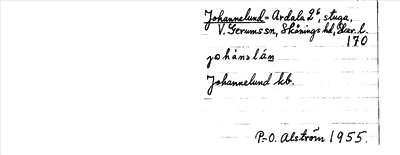 Johannelund = Ardala 2⁶, stuga,
V. Gerums sn, Skånings hd, Skar. l.
170
johånslán
Johannelund kb.
P.-O. Alström 1955.